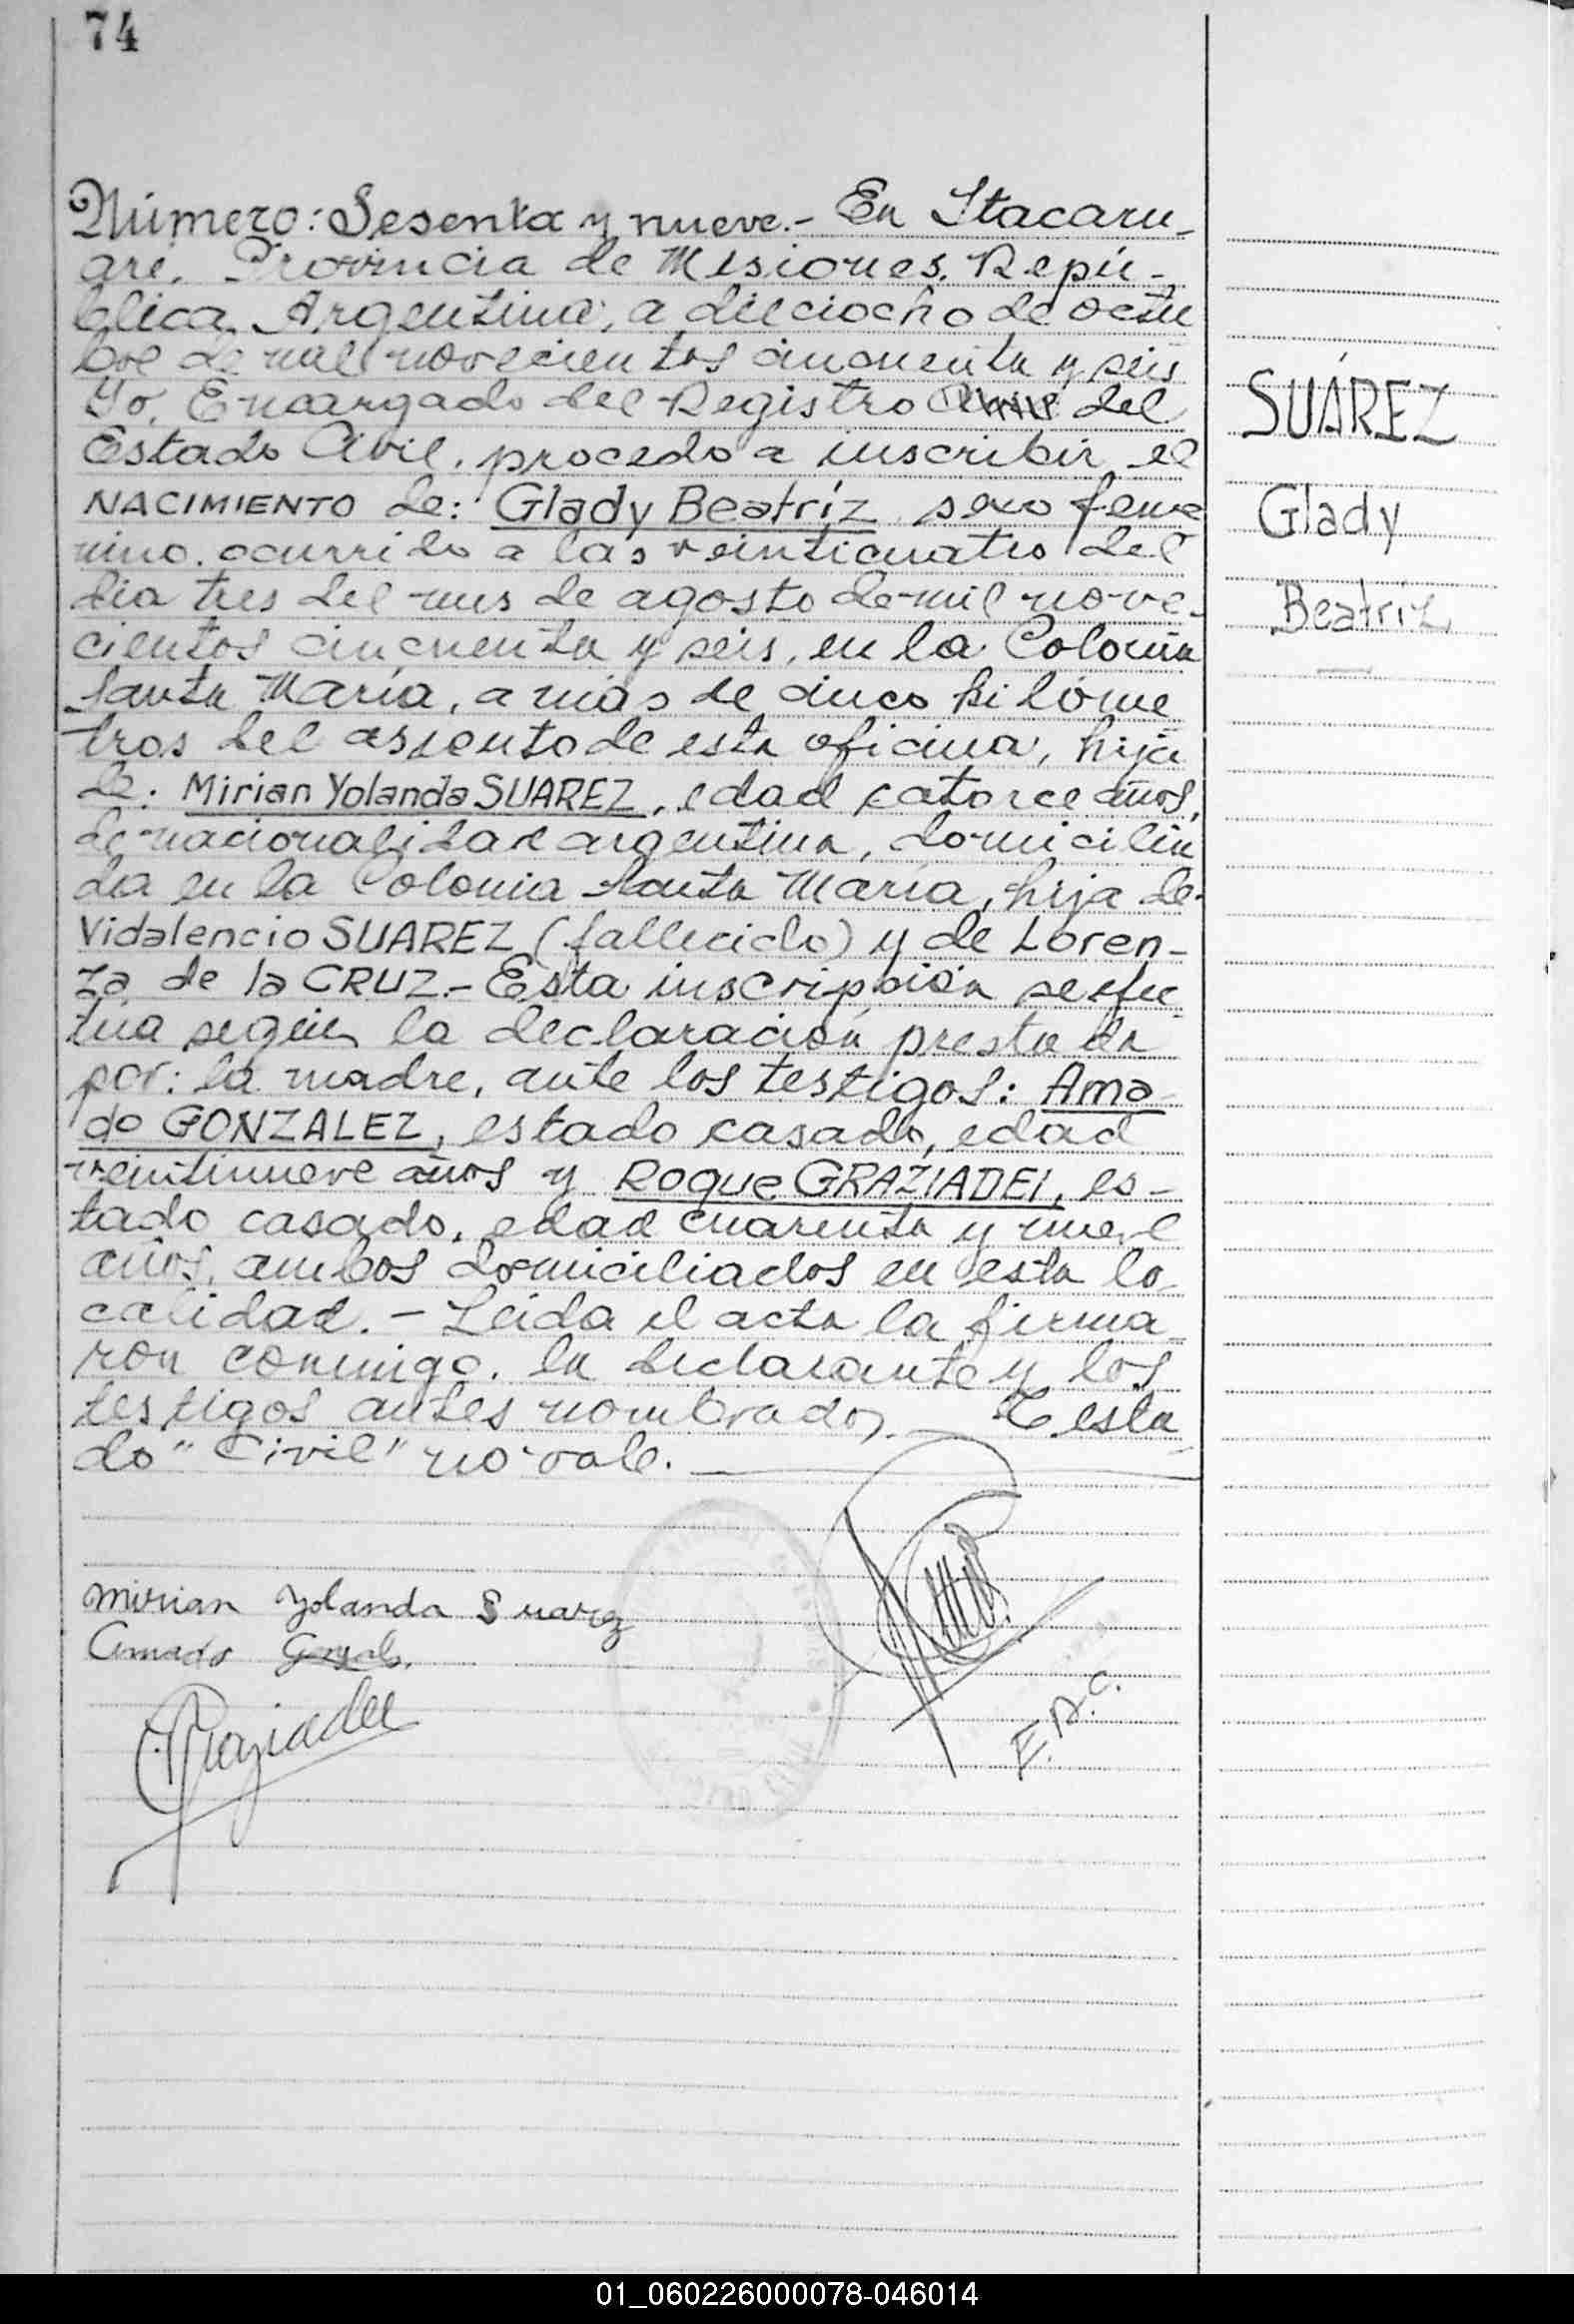 74
Número: Sesenta y nueve.- En Itacaru-
aré, Provincia de Misiones, Repú-
blica Argentina, a dieciocho de octu
bre de mil novecientos cincuenta y seis
Yo, Encargado del Registro Civil del
Estado Civil, procedo a inscribir el
NACIMIENTO de: Glady Beatríz sexo feme
nino. ocurrido a las veinticuatro del
dia tres del mes de agosto de mil nove-
cientos cincuenta y seis, en la Colonia
Santa María, a más de cinco kilóme
tros del asiento de esta oficina, hija
de: Mirian Yolanda SUAREZ, edad catorce años,
de nacionalidad argentina, domicilia
da en la Colonia Santa María, hija de
Vidalencio SUAREZ (fallecido) y de Loren-
za de la CRUZ.- Esta inscripción se efec
túa según la declaración prestada
por: la madre, ante los testigos: Ama-
do GONZALEZ, estado casado, edad
veintinueve años y Roque GRAZIADEI, es-
tado casado, edad cuarenta y nueve
años, ambos domiciliados en esta lo-
calidad.- Leida el acta la firma-
ron conmigo, la declarante y los
testigos antes nombrados.- Testa-
do "Civil" no vale.
SUÁREZ
Glady
Beatriz
Mirian Yolanda Suarez
Amado
Graziadei
E.R.C.
01_060226000078-046014